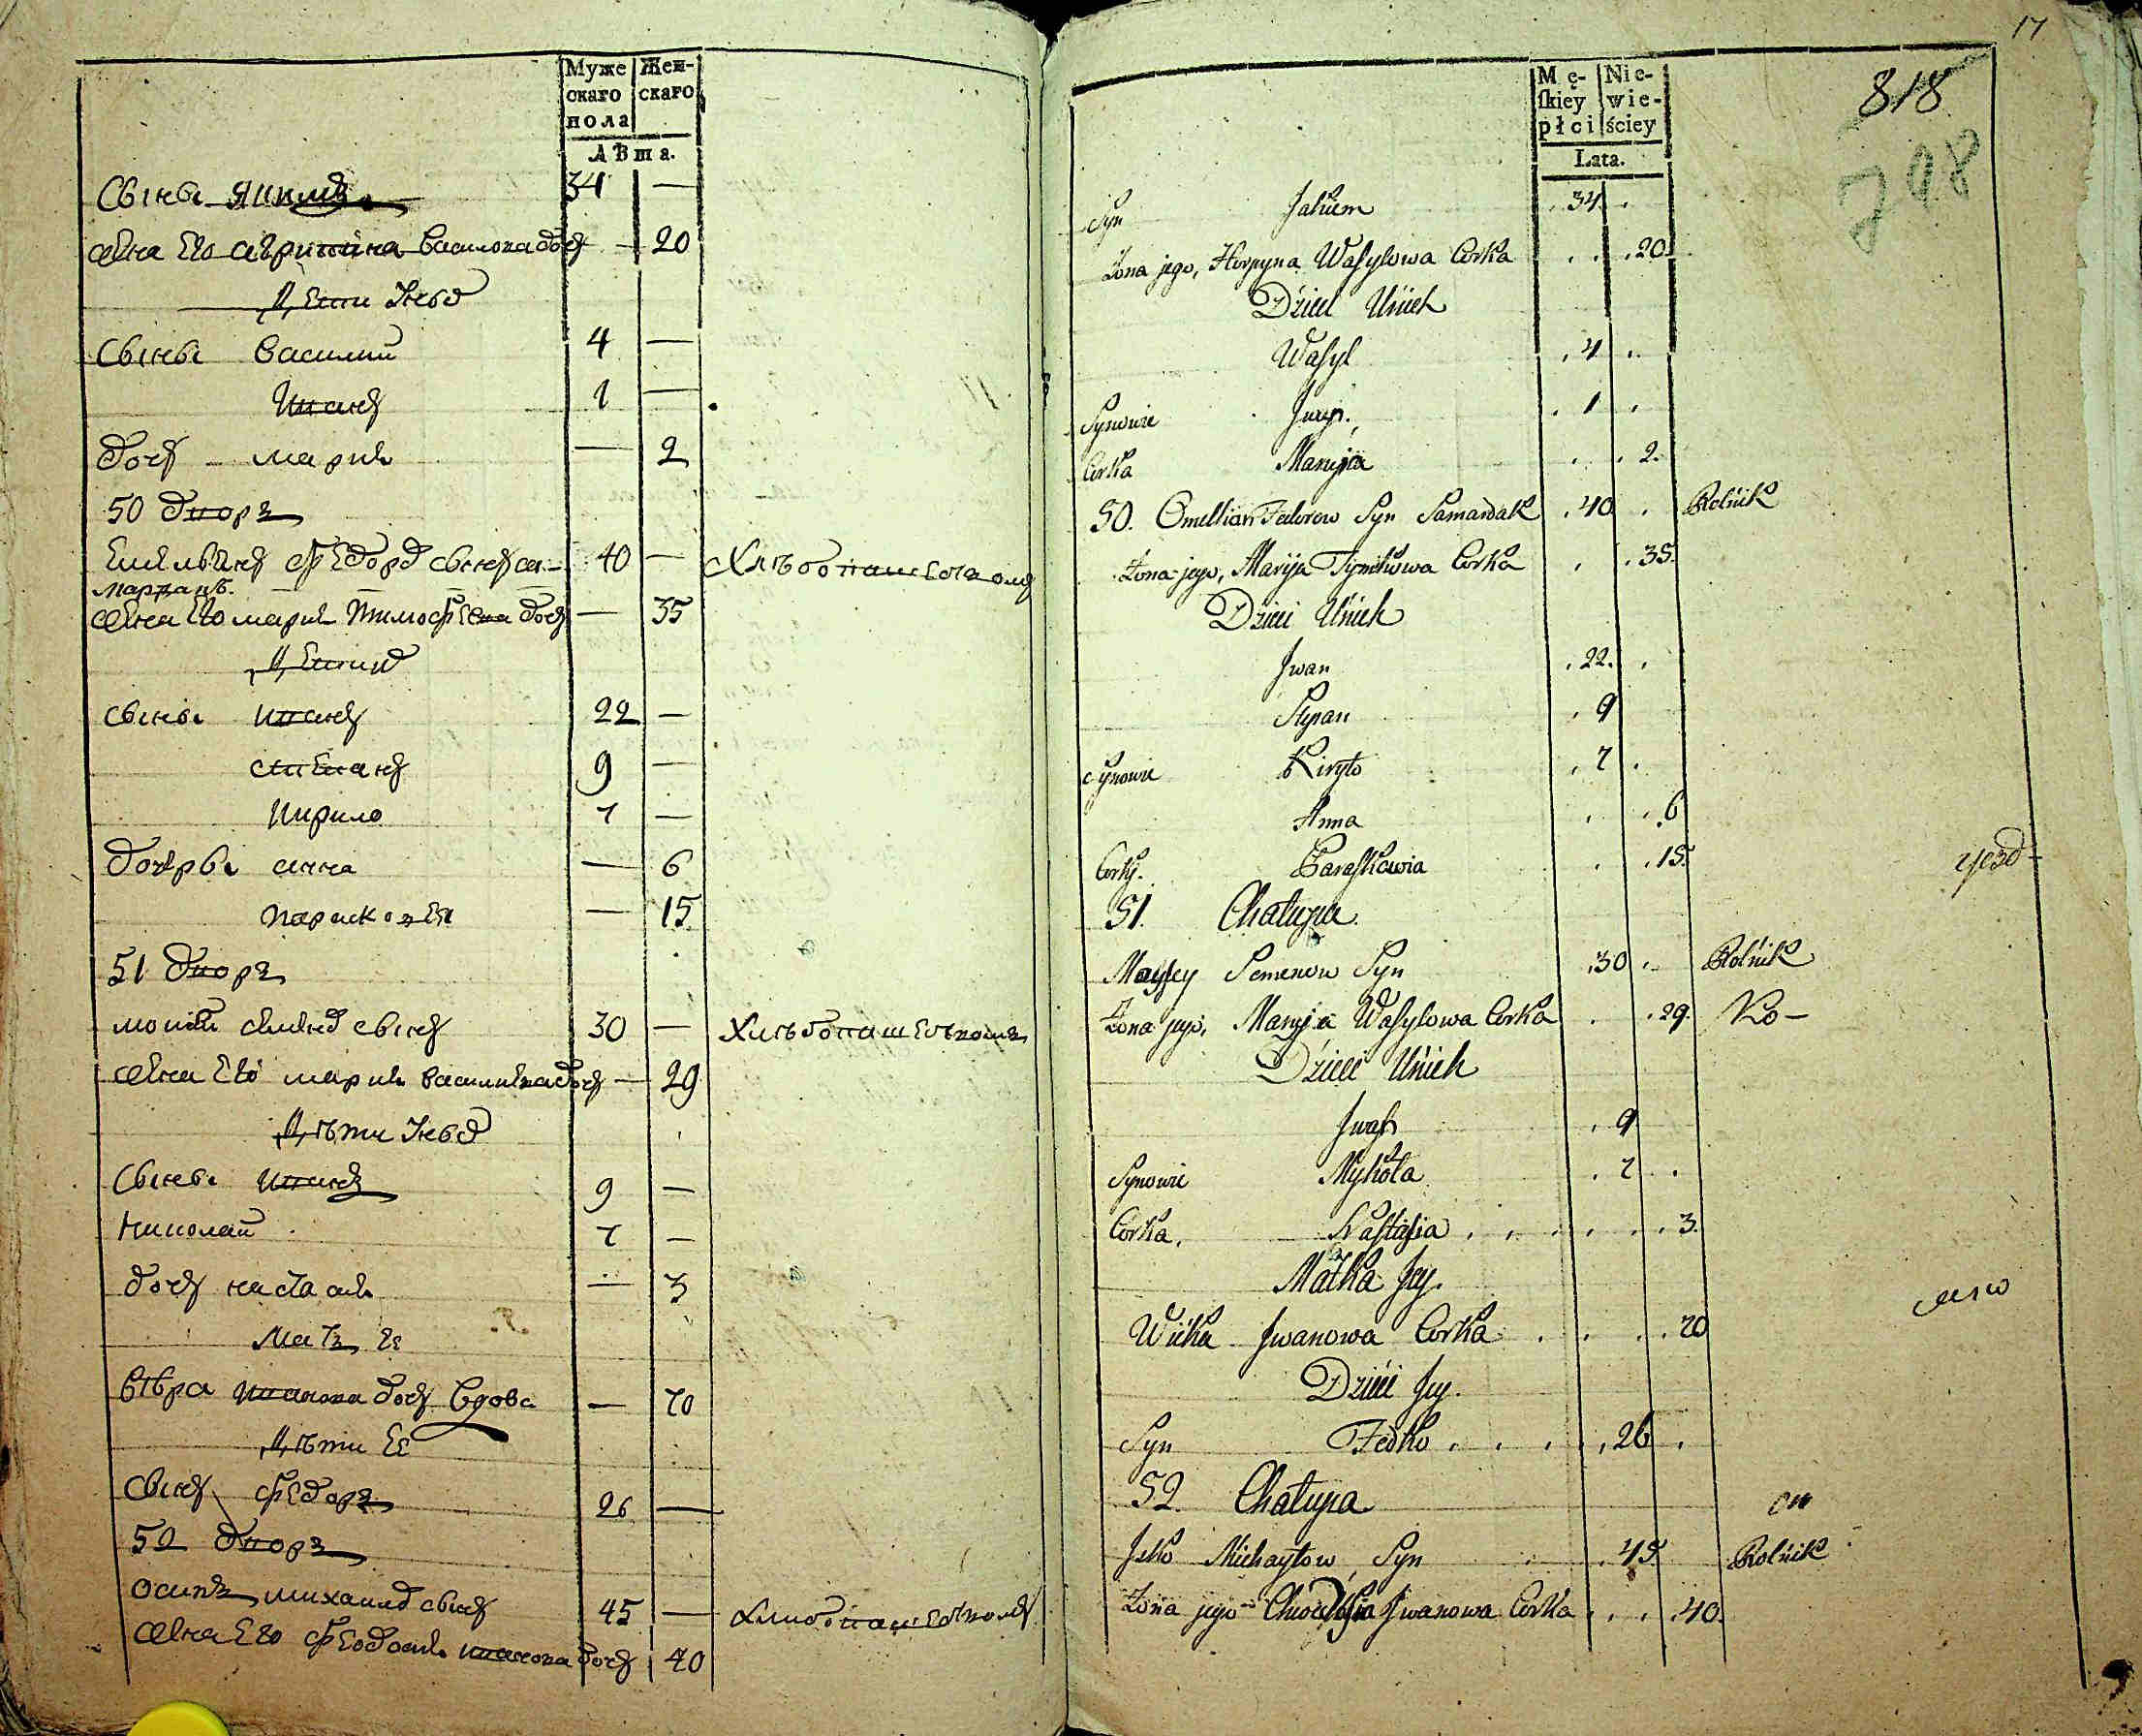 Муже Жен-
скаго скаго
пола
Лѣта.
Сынъ Якимъ 34 —
жена Его Агрипина Василова дочь — 20
Дети Ихъ
Сыны Василий 4 —
Иванъ 1 —
дочь Мария — 2
50 дворъ
Емельянъ Федоровъ сынъ Са- 40 — Хлѣбопашествомъ
мардакъ.
жена Его Мария Тимофеева дочь — 35
Дети ихъ
Сыны Иванъ 22 —
Степанъ 9 —
Кирило 7 —
дочери Анна — 6
Парасковея — 15
51 дворъ
30 — Хлѣбопашествомъ
жена Его Мария Василиева дочь — 29
Дѣти Ихъ
Сыны Иванъ 9 —
Николай 7 —
дочь Настасия — 3
Мать Ее
Вѣра Иванова дочь Вдова — 70
Дѣти Ее
Сынъ Федоръ 26 —
52 дворъ
Осипъ Михайловъ сынъ 45 — Хлибопашествомъ
жена Его Феодосия Иванова дочь 40
17
Mę- Nie-
ſkiey wie-
płci ściey
Lata.
818
298
Syn Jakiem 34
Żona jego, Horpyna Wasylowa Corka 20
Dzieci Unich
Wasyl 4
Synowie Iwan 1
Corka Maryja 2.
50. Omellian Fedorow Syn Samardak 40 Rolnik
Żona jego, Marija Tymkowa Corka 35.
Dzieci Unich
Jwan 22.
Stepan 9
Synowie Kiryło 7
Anna 6
Corky. Paraskawia 15.
51. Chałupa
Moysey Semenow Syn 30 Rolnik
Żona jego, Maryja Wasylowa Corka 29. Ro-
Dzieci Unich
Jwaś 9
Synowie Mykoła 7
Corka. Nastasia 3.
Matka Jey.
Wirka Jwanowa Corka 70
Dzieci Jey.
Syn Fedko 26
52. Chałupa
Jsko Michayłow Syn 45 Rolnik
Żona jego Chwedosia Jwanowa Corka 40.